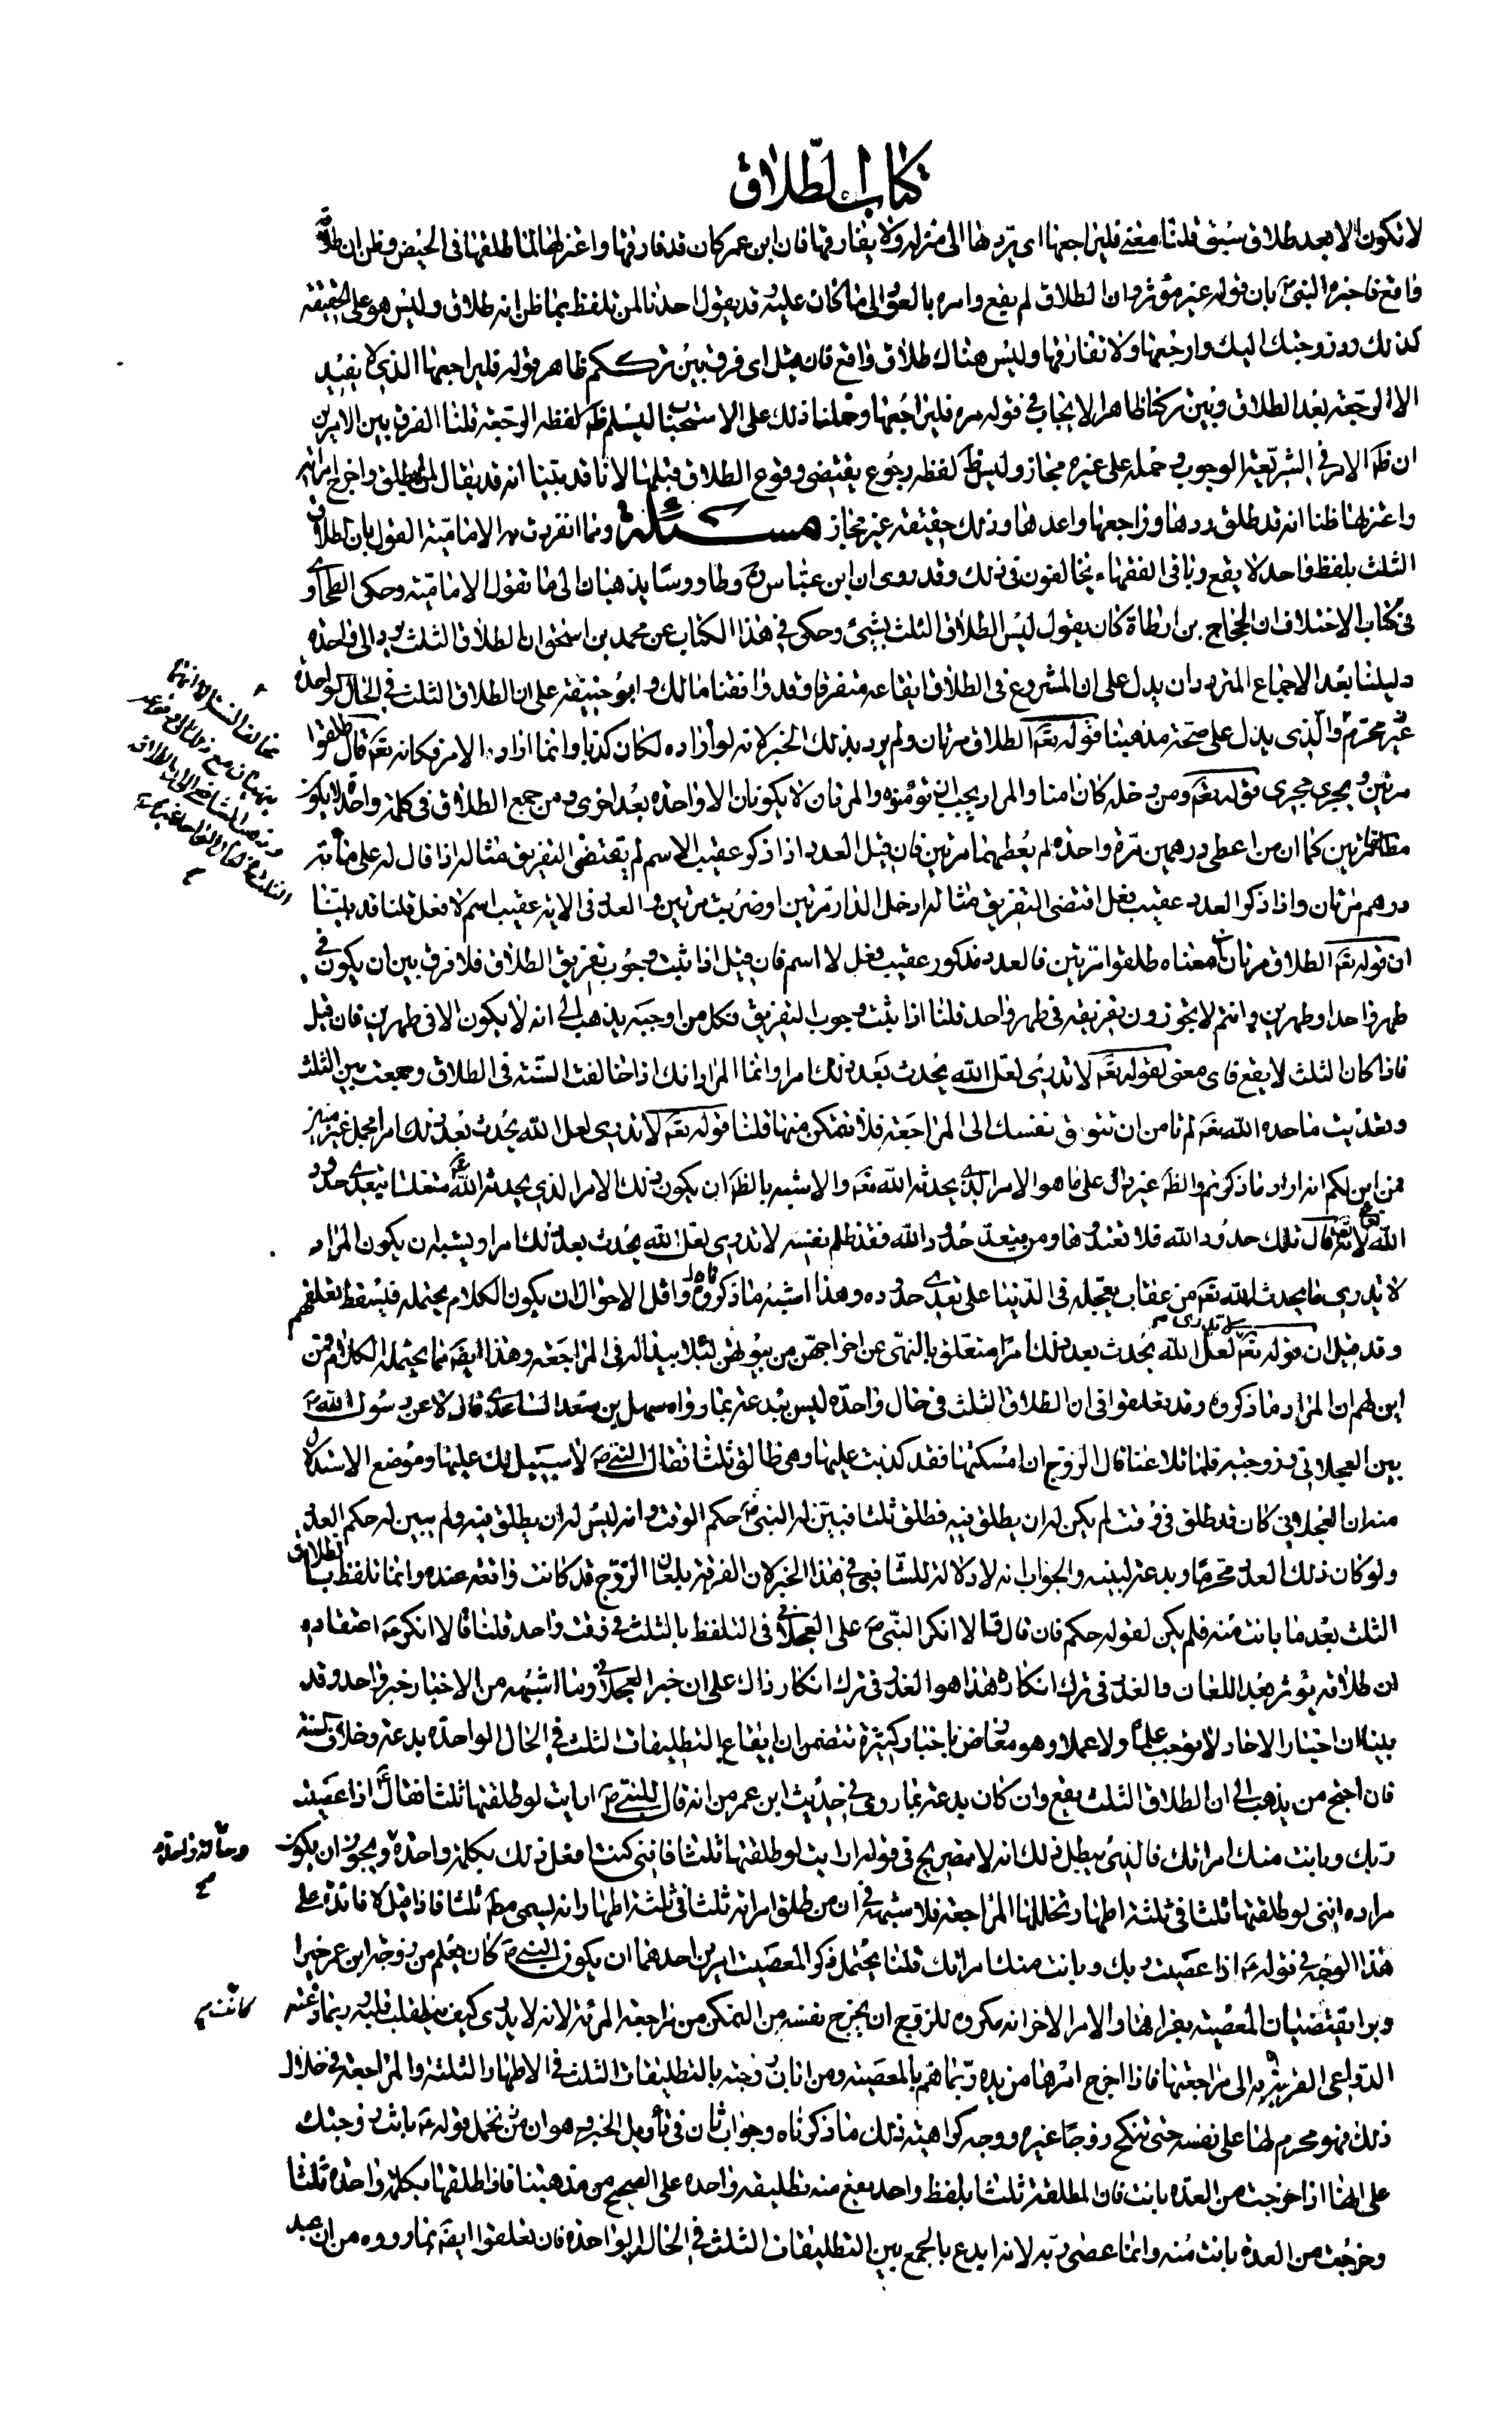 كتاب الطلاق
لا تكون الا بعد طلاق سبق قلنا معنى فليراجعها اى يردها الى منزله ولا يفارقها فان ابن عمر كان قد فارقها واعتزلها لما طلقها فى الحيض وظن ان طلاقه
واقع فاخبره النبى بان قوله غير مؤثر وان الطلاق لم يقع وامره بالعود الى ما كان عليه وقد يقول احدنا لمن تلفظ بما ظن انه طلاق وليس هو على الحقيقة
كذلك رد زوجتك اليك وارجعها ولا تفارقها وليس هناك طلاق واقع فان قيل اى فرق بين ترككم ظاهر قوله فليراجعها الذى لا يفيد
الا الرجعة بعد الطلاق وبين تركنا ظاهر الايجاب فى قوله مره فليراجعها وحملنا ذلك على الاستحباب ليسلم ظ لفظه الرجعة قلنا الفرق بين الامرين
ان ظ الامر فى الشريعة الوجوب وحمله على غيره مجاز وليس ظ لفظه رجوع يقتضى وقوع الطلاق قبلها لانا قد بينا انه قد يقال لمن لم يطلق واخرج امرأته
واعتزلها ظنا انه قد طلق ردها وراجعها واعدها وذلك حقيقة غير مجاز مسئلة ومما انفردت به الامامية القول بان الطلاق
الثلث بلفظ واحد لا يقع وباقى الفقهاء يخالفون فى ذلك وقد روى ان ابن عباس ره وطاووسا يذهبان الى ما تقول الامامية وحكى الطحاوى
فى كتاب الاختلاف ان الحجاج بن ارطاة كان يقول ليس الطلاق الثلث بشىء وحكى فى هذا الكتاب عن محمد بن اسحق ان الطلاق الثلث يرد الى واحدة
دليلنا بعد الاجماع المتردد ان يدل على ان المشروع فى الطلاق ايقاعه متفرقا وقد وافقنا مالك وابو حنيفة على ان الطلاق الثلث فى الحال الواحدة
غير محترم والذى يدل على صحة مذهبنا قوله تع الطلاق مرتان ولم يرد بذلك الخبر لانه لو اراده لكان كذبا وانما اراد الامر فكانه تع قال طلقوا
مرتين ويجرى مجرى قوله تع ومن دخله كان امنا والمراد يجب ان تؤمنوه والمرتان لا يكونان الا واحدة بعد اخرى ومن جمع الطلاق فى كلمة واحدة لا يكون
مطلقا مرتين كما ان من اعطى درهمين مرة واحدة لم يعطهما مرتين فان قيل العدد اذا ذكر عقيب الاسم لم يقتض التفريق مثاله اذا قال له على مائة
درهم مرتان واذا ذكر العدد عقيب فعل اقتضى التفريق مثاله ادخل الدار مرتين او ضربت مرتين والعدد فى الاية عقيب اسم لا فعل قلنا قد بينا
ان قوله تع الطلاق مرتان معناه طلقوا مرتين فالعدد مذكور عقيب فعل لا اسم فان قيل اذا ثبت وجوب تفريق الطلاق فلا فرق بين ان يكون فى
طهر واحد او طهرين وانتم لا تجوزون تفريقه فى طهر واحد قلنا اذا ثبت وجوب التفريق فكل من اوجبه يذهب الى انه لا يكون الا فى طهرين فان قيل
فاذا كان الثلث لا يقع فاى معنى لقوله تع لا تدرى لعل الله يحدث بعد ذلك امرا وانما المراد انك اذا خالفت السنة فى الطلاق وجمعت بين الثلث
وتعديت ما حده الله تع لم تامن ان تتوق نفسك الى المراجعة فلا تتمكن منها قلنا قوله تع لا تدرى لعل الله يحدث بعد ذلك امرا مجمل غير مبين
فمن اين لكم انه اراد ما ذكرتم والظ غير دال على ما هو الامر الذى يحدثه الله تع والاشبه بالظ ان يكون ذلك الامر الذى يحدثه الله متعلقا بتعدى حدود
الله لانه تع قال تلك حدود الله فلا تعتدوها ومن يتعد حدود الله فقد ظلم نفسه لا تدرى لعل الله يحدث بعد ذلك امرا ويشبه ان يكون المراد
لا تدرى ما يحدث الله تع من عقاب يعجله فى الدنيا على تعدى حدوده وهذا اشبه مما ذكروه واقل الاحوال ان يكون الكلام يحتمله فيسقط تعلقهم
وقد قيل ان قوله تع لا تدرى لعل الله يحدث بعد ذلك امرا متعلق بالنهى عن اخراجهن من بيوتهن لئلا يبدو له فى المراجعة وهذا ايض مما يحتمله الكلام فمن
اين لهم ان المراد ما ذكروه وقد تعلقوا فى ان الطلاق الثلث فى حال واحدة ليس ببدعة بما رواه سهل بن سعد الساعدى قال لاعن رسول الله ص
بين العجلانى وزوجته فلما تلاعنا قال الزوج ان امسكتها فقد كذبت عليها وهى طالق ثلثا فقال النبى ص لا سبيل لك عليها وموضع الاستدلال
منه ان العجلانى كان قد طلق فى وقت لم يكن له ان يطلق فيه فطلق ثلثا فبين له النبى ص حكم الوقت وانه ليس له ان يطلق فيه ولم يبين له حكم العدد
ولو كان ذلك العدد محرما وبدعة لبينه والجواب انه لا دلالة للشافعى فى هذا الخبر لان الفرقة بلعان الزوج قد كانت واقعة عنده وانما تلفظ بالطلاق
الثلث بعد ما بانت منه فلم يكن لقوله حكم فان قالوا الا انكر النبى ص على العجلانى فى التلفظ بالثلث فى وقت واحد قلنا قالا انكر ص اعتقاده
ان طلاقه يؤثر بعد اللعان والعذر فى ترك انكاره هذا هو العذر فى ترك انكار ذاك على ان خبر العجلانى وما اشبهه من الاخبار خبر واحد وقد
بينا ان اخبار الاحاد لا توجب علما ولا عملا وهو معارض باخبار كثيرة تتضمن ان ايقاع التطليقات الثلث فى الحال الواحدة بدعة وخلاف السنة
فان احتج من يذهب الى ان الطلاق الثلث يقع وان كان بدعة بما روى فى حديث ابن عمر من انه قال للنبى ص ارايت لو طلقتها ثلثا فقال اذا عصيت
ربك وبانت منك امراتك فالذى يبطل ذلك انه لا تصريح فى قوله ارايت لو طلقتها ثلثا فاننى كنت افعل ذلك بكلمة واحدة ويجوز ان يكون
وحالة واحدة
مراده اننى لو طلقتها ثلثا فى ثلثة اطهار تخللها المراجعة فلا شبهة فى ان من طلق امراته ثلثا فى ثلثة اطهار انه يسمى مط ثلثا فاذا قيل لا فائدة على
هذا الوجه فى قوله ص اذا عصيت ربك وبانت منك امراتك قلنا يحتمل ذكر المعصيت امرين احدهما ان يكون النبى ص كان يعلم من زوجة ابن عمر خيرا
وبرا يقتضيان المعصية بفراقها والامر الاخر انه مكروه للزوج ان يخرج نفسه من التمكن من مراجعة المرئة لانه لا يدرى كيف ينقلب قلبه ربما دعته
كانت
الدواعى القوية الى مراجعتها فاذا اخرج امرها من يده ربما هم بالمعصية ومن ابان زوجته بالتطليقات الثلث فى الاطهار الثلثة والمراجعة فى خلال
ذلك فهو محرم لها على نفسه حتى تنكح زوجا غيره ووجه كراهية ذلك ما ذكرناه وجواب ثان فى تأويل الخبر وهو ان نحمل قوله ص بانت زوجتك
على انها اذا خرجت من العدة بانت فان المطلقة ثلثا بلفظ واحد يقع منه تطليقة واحدة على الصحيح من مذهبنا فاذا طلقها بكلمة واحدة ثلثا
وخرجت من العدة بانت منه وانما عصى ربه لانه ابدع بالجمع بين التطليقات الثلث فى الحال الواحدة فان تعلقوا ايض بما رووه من ان عبد